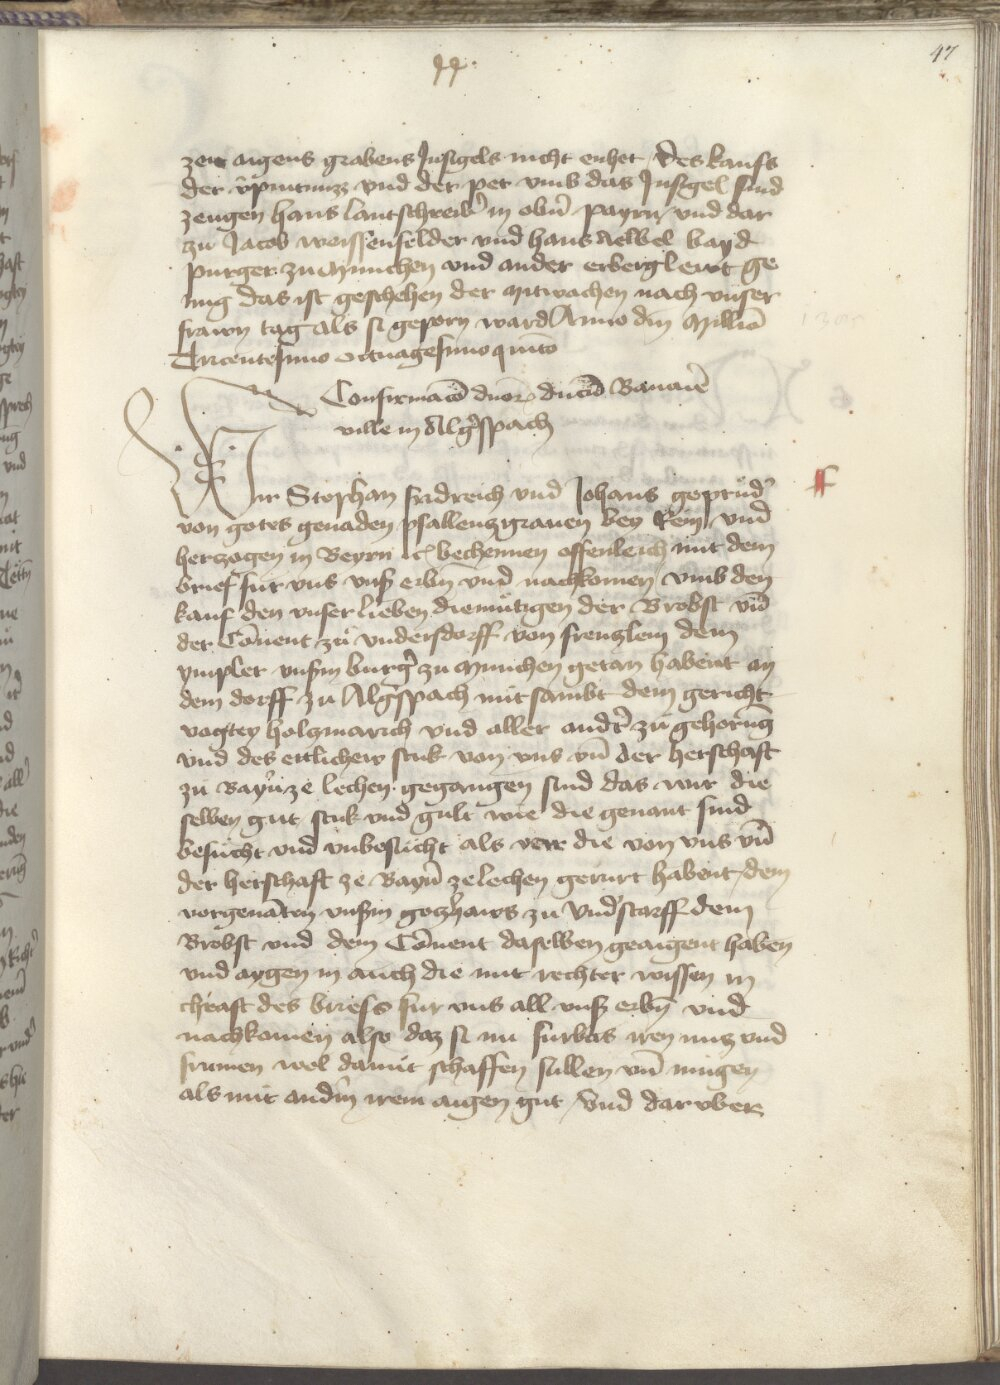 47
zeit aigens grabens Insigels nicht enhet / Des kaufs
der v̈pintnuzz vnd der pet vmb das Insigel sind
zeugen hans lantschreib̓ in obn̄ payrn / vnd dar
zu Jacob weissenfelder vnd hans bayd
purger zu Munchen vnd ander erberg lewt ge
nug das ist geschehen der Mitwochen nach vnser
frawn tag als si geporn ward Anno dm̄ Mill̄io
Tricentesimo octuagesimo quinto
Confirmaco͞ duor͞ ducu͞ Bauarie͞
ville in Alg̓spach
f
Wir Stephan fridreich vnd Johans geprüd̓
von gotes genaden pfallenczgrauen bey Rein vnd
herczogen in Beyrn ꝛc bechennen offenleich mit dem
brief fur vns vnß erbn̄ vnd nachkomen vmb den
kauf den vnser lieben diemütigen der Brobst vn̄
der Conuent zü vndersdorff von frenzlein dem
ympler vnßm burg̓ zu Munchen getan habent an
dem dorff zu Alg̓spach mit sambt dem gericht
vogtey holzmarich vnd aller and̓r zu gehorūg
vnd des ettlicher stuk von vns vn̄ der herschaft
zu Bayrn̄ ze lechen gegangen sind das wir die
selben gut stuk vnd gült wie die genant sind
besücht vnd vnbesücht als verr die von vns vn̄
der herschaft ze Bayrn̄ ze lechen gerürt habent / dem
vorgenāten vnßm goczhaws zu Vnd̓starff dem
Brobst vnd dem Conuent daselben geaigent haben
vnd aygen in auch die mit rechter wissen in
chraft des briefs fur vns all vnß erbn̄ vnd
nachkomen also daz si nu furbas iren nucz vnd
frumen wol damit schaffen sullen vn̄ mügen
als mit andn̓ irem aigen gut / Vnd darvber